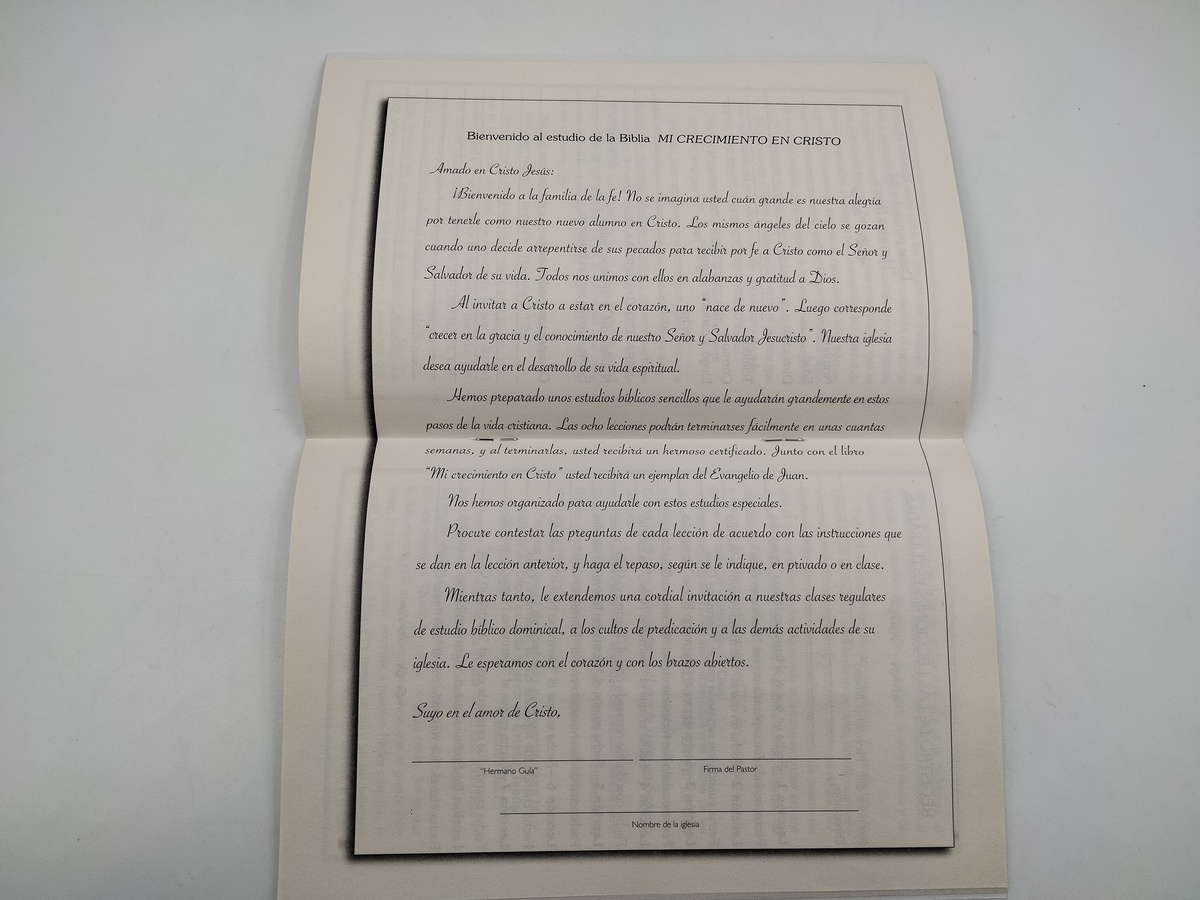 Bienvenido al estudio de la Biblia MI CRECIMIENTO EN CRISTO
Amado en Cristo Jesús:
¡Bienvenido a la familia de la fe! No se imagina usted cuán grande es nuestra alegría
por tenerle como nuestro nuevo alumno en Cristo. Los mismos ángeles del cielo se gozan
cuando uno decide arrepentirse de sus pecados para recibir por fe a Cristo como el Señor y
Salvador de su vida. Todos nos unimos con ellos en alabanzas y gratitud a Dios.
Al invitar a Cristo a estar en el corazón, uno “nace de nuevo”. Luego corresponde
“crecer en la gracia y el conocimiento de nuestro Señor y Salvador Jesucristo”. Nuestra iglesia
desea ayudarle en el desarrollo de su vida espiritual.
Hemos preparado unos estudios bíblicos sencillos que le ayudarán grandemente en estos
pasos de la vida cristiana. Las ocho lecciones podrán terminarses fácilmente en unas cuantas
semanas, y al terminarlas, usted recibirá un hermoso certificado. Junto con el libro
“Mi crecimiento en Cristo” usted recibirá un ejemplar del Evangelio de Juan.
Nos hemos organizado para ayudarle con estos estudios especiales.
Procure contestar las preguntas de cada lección de acuerdo con las instrucciones que
se dan en la lección anterior, y haga el repaso, según se le indique, en privado o en clase.
Mientras tanto, le extendemos una cordial invitación a nuestras clases regulares
de estudio bíblico dominical, a los cultos de predicación y a las demás actividades de su
iglesia. Le esperamos con el corazón y con los brazos abiertos.
Suyo en el amor de Cristo,
“Hermano Guía” Firma del Pastor
Nombre de la iglesia